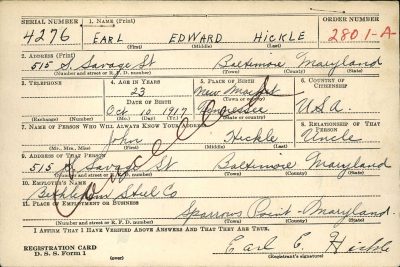 SERIAL NUMBER 1. NAME (Print) ORDER NUMBER
4276 EARL EDWARD HICKLE 2801-A-
(First) (Middle) (Last)
2. ADDRESS (Print)
515 S. Savage St Baltimore Maryland
(Number and street or R. F. D. number) (Town) (County) (State)
3. TELEPHONE 4. AGE IN YEARS 5. PLACE OF BIRTH 6. COUNTRY OF CITIZENSHIP
23 New Market
DATE OF BIRTH (Town or county)
Oct 12 1917 Tennessee U.S.A.
(Exchange) (Number) (Mo.) (Day) (Yr.) (State or country)
7. NAME OF PERSON WHO WILL ALWAYS KNOW YOUR ADDRESS 8. RELATIONSHIP OF THAT PERSON
John Hickle Uncle
(Mr., Mrs., Miss) (First) (Middle) (Last)
9. ADDRESS OF THAT PERSON
515 S. Savage St Baltimore Maryland
(Number and street or R. F. D. number) (Town) (County) (State)
10. EMPLOYER'S NAME
Bethlehem Steel Co
11. PLACE OF EMPLOYMENT OR BUSINESS
Sparrows Point Maryland
(Number and street or R. F. D. number) (Town) (County) (State)
I AFFIRM THAT I HAVE VERIFIED ABOVE ANSWERS AND THAT THEY ARE TRUE.
REGISTRATION CARD
D. S. S. Form 1
Earl E. Hickle
(Registrant's signature)
Cancelled